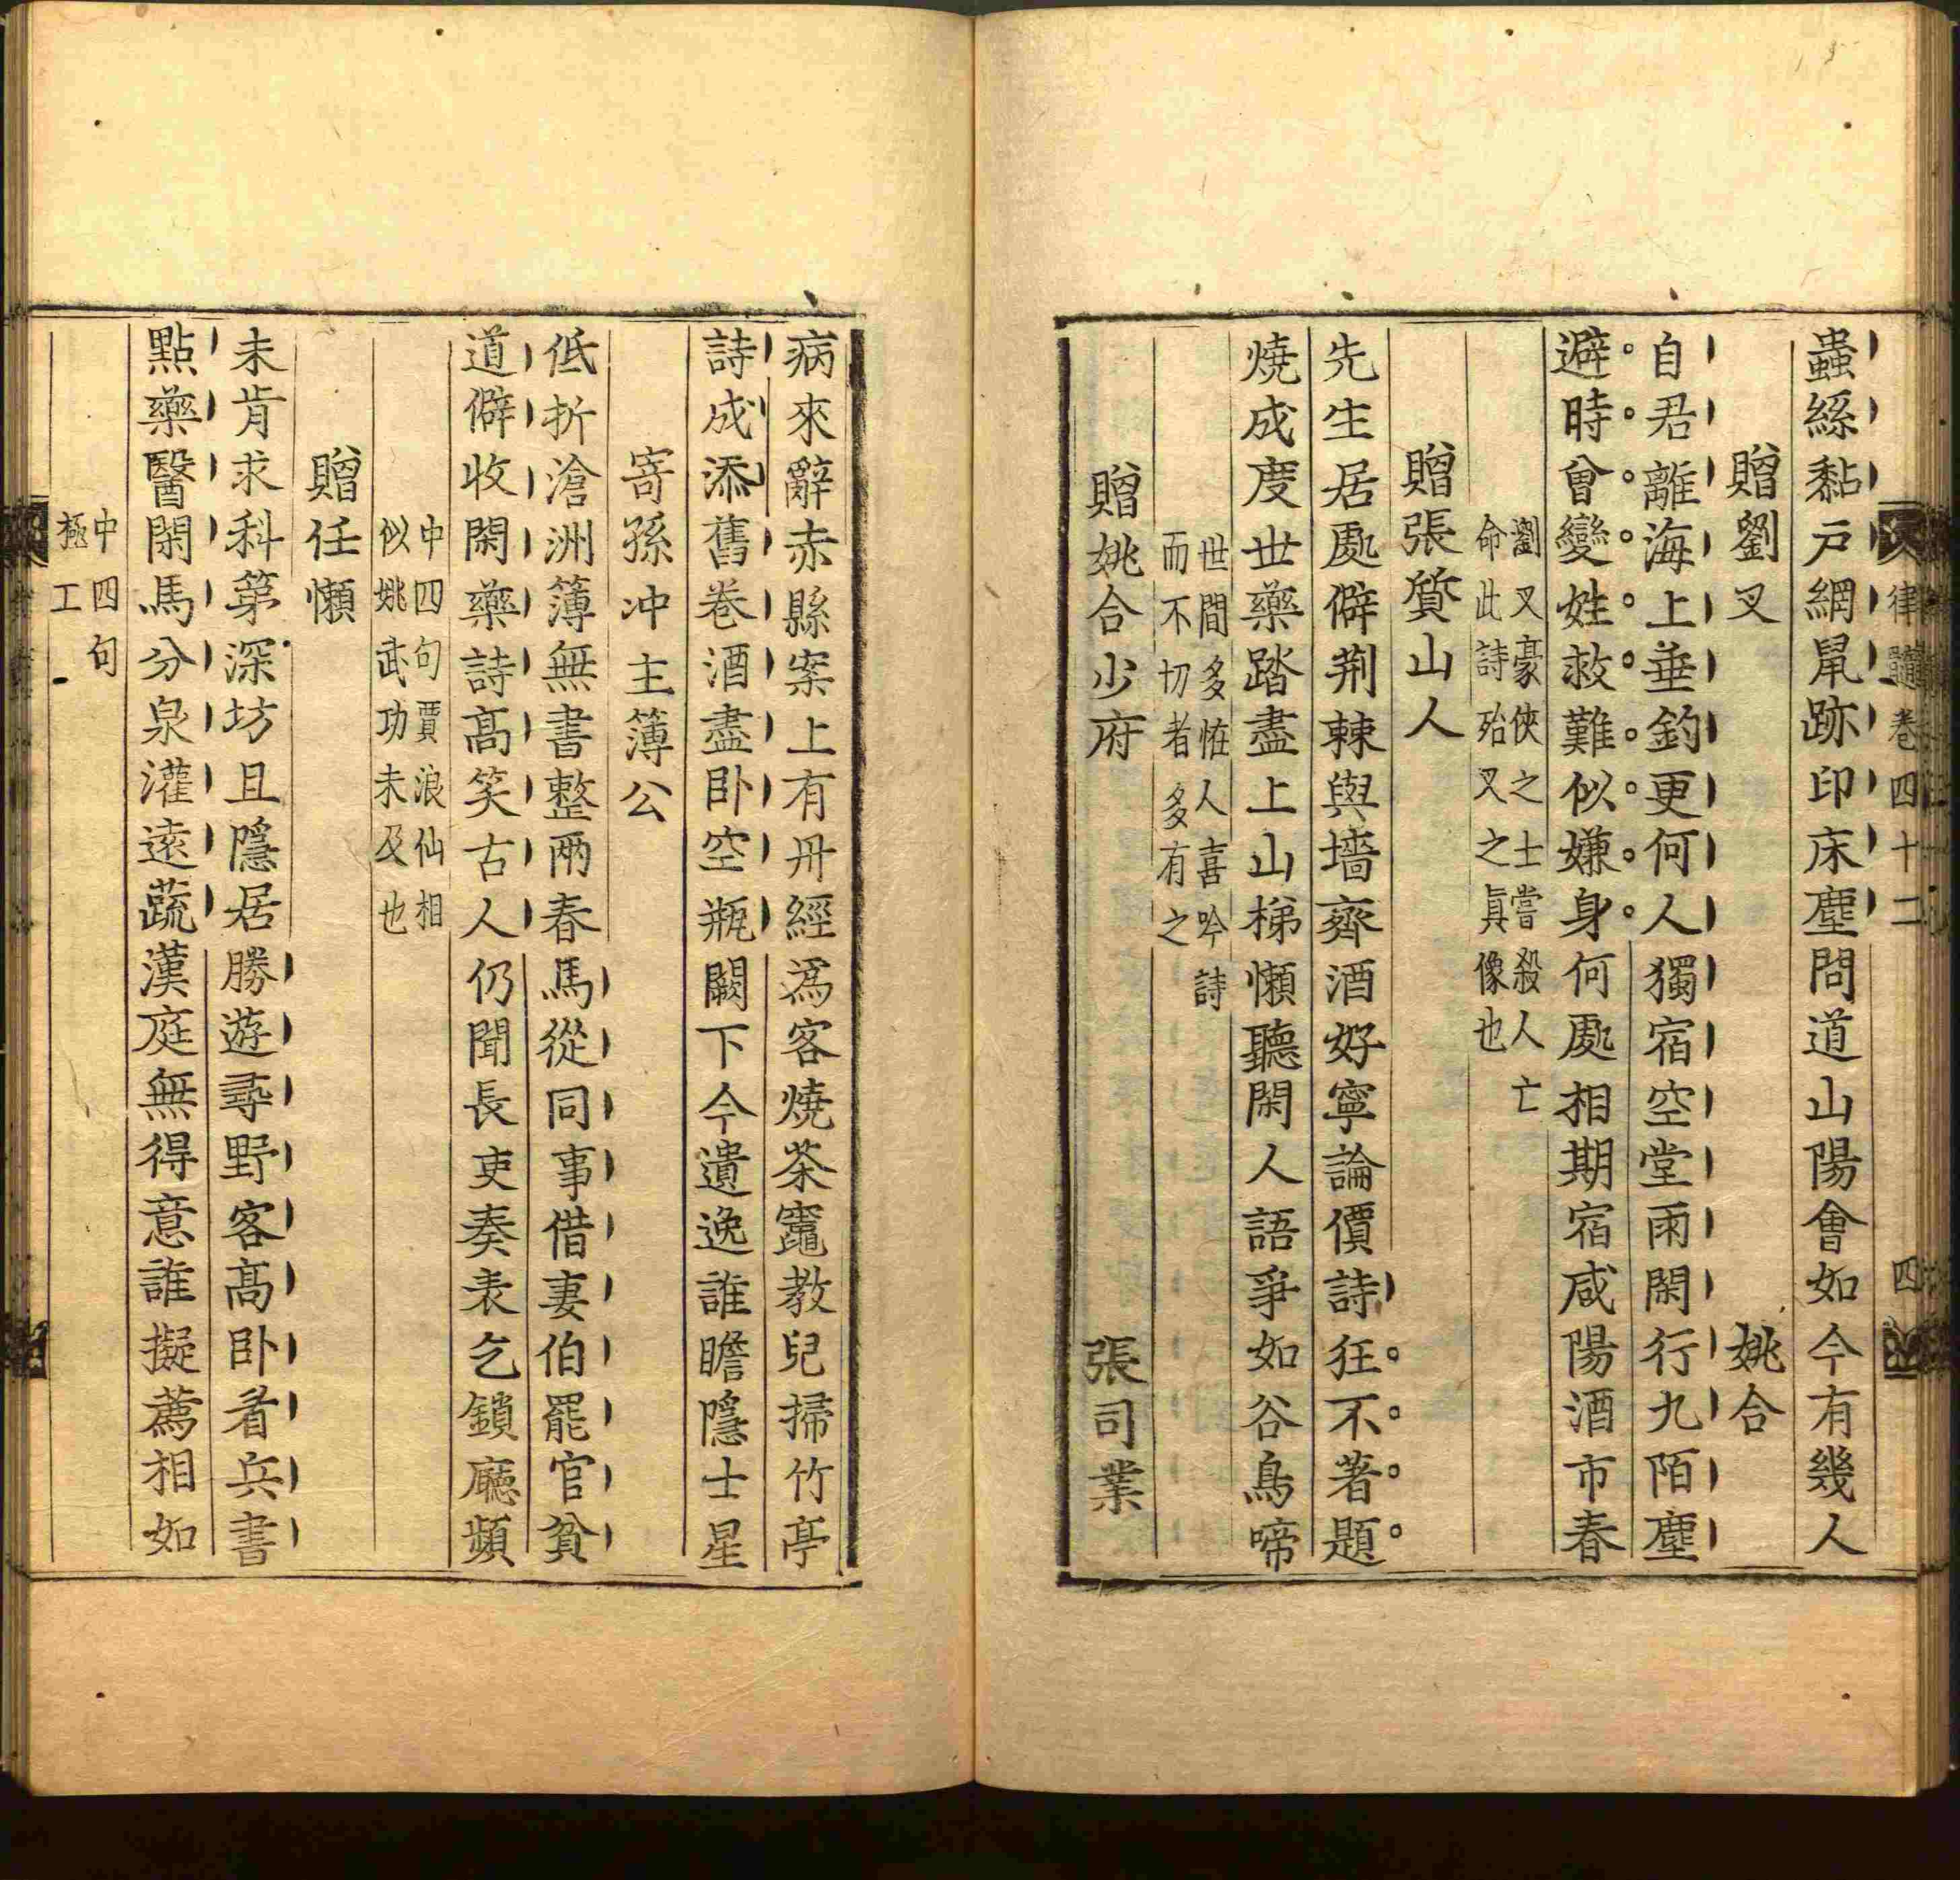 律髓卷四十二
四
蟲絲黏戸網鼠跡印床塵問道山陽會如今有幾人
贈劉叉
姚合
自君離海上垂釣更何人獨宿空堂雨閑行九陌塵
避時曾變姓救難似嫌身何處相期宿咸陽酒市春
劉叉豪俠之士嘗殺人亡
命此詩殆叉之眞像也
贈張質山人
先生居處僻荆棘與墻齊酒好寧論價詩狂不著題
燒成度世藥踏盡上山梯懶聽閑人語爭如谷鳥啼
世間多恠人喜吟詩
而不切者多有之
贈姚合少府
張司業
病來辭赤縣案上有丹經爲客燒茶竈教兒掃竹亭
詩成添舊卷酒盡卧空瓶闕下今遺逸誰瞻隱士星
寄孫冲主簿公
低折滄洲簿無書整兩春馬從同事借妻伯罷官貧
道僻收閑藥詩高笑古人仍聞長吏奏表乞鎖廳頻
中四句賈浪仙相
似姚武功未及也
贈任懶
未肯求科第深坊且隱居勝遊尋野客高卧看兵書
點藥醫閑馬分泉灌遠蔬漢庭無得意誰擬薦相如
中四句
極工